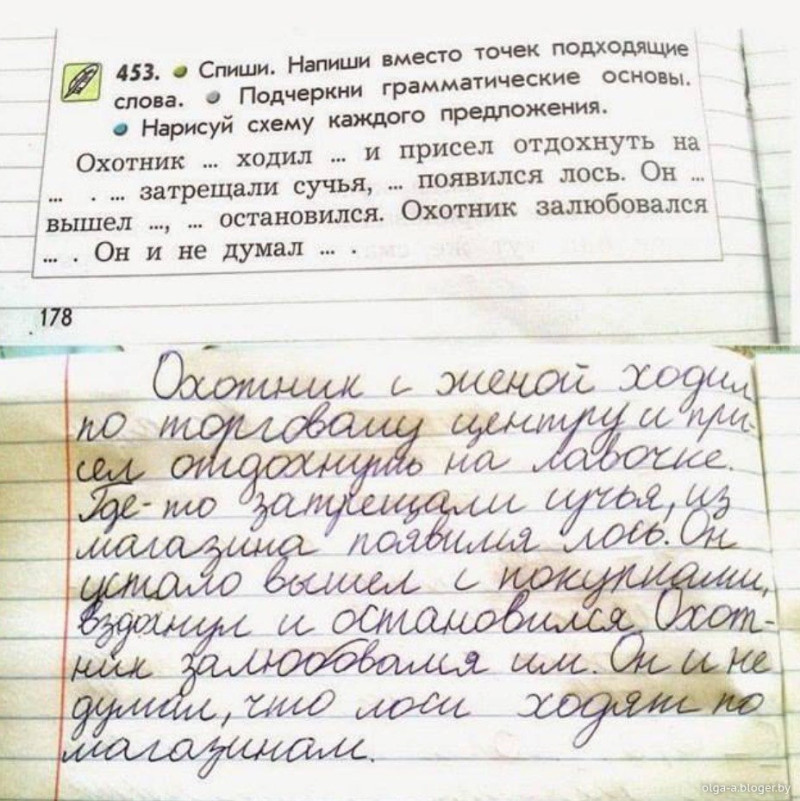 453. Спиши. Напиши вместо точек подходящие
слова. Подчеркни грамматические основы.
Нарисуй схему каждого предложения.
Охотник ... ходил ... и присел отдохнуть на
... . ... затрещали сучья, ... появился лось. Он ...
вышел ..., ... остановился. Охотник залюбовался
... . Он и не думал ... .
178
Охотник с женой ходил
по торговому центру и при-
сел отдохнуть на лавочке.
Где-то затрещали сучья, из
магазина появился лось. Он
устало вышел с покупками,
вздохнул и остановился. Охот-
ник залюбовался им. Он и не
думал, что лоси ходят по
магазинам.
olga-a.bloger.by